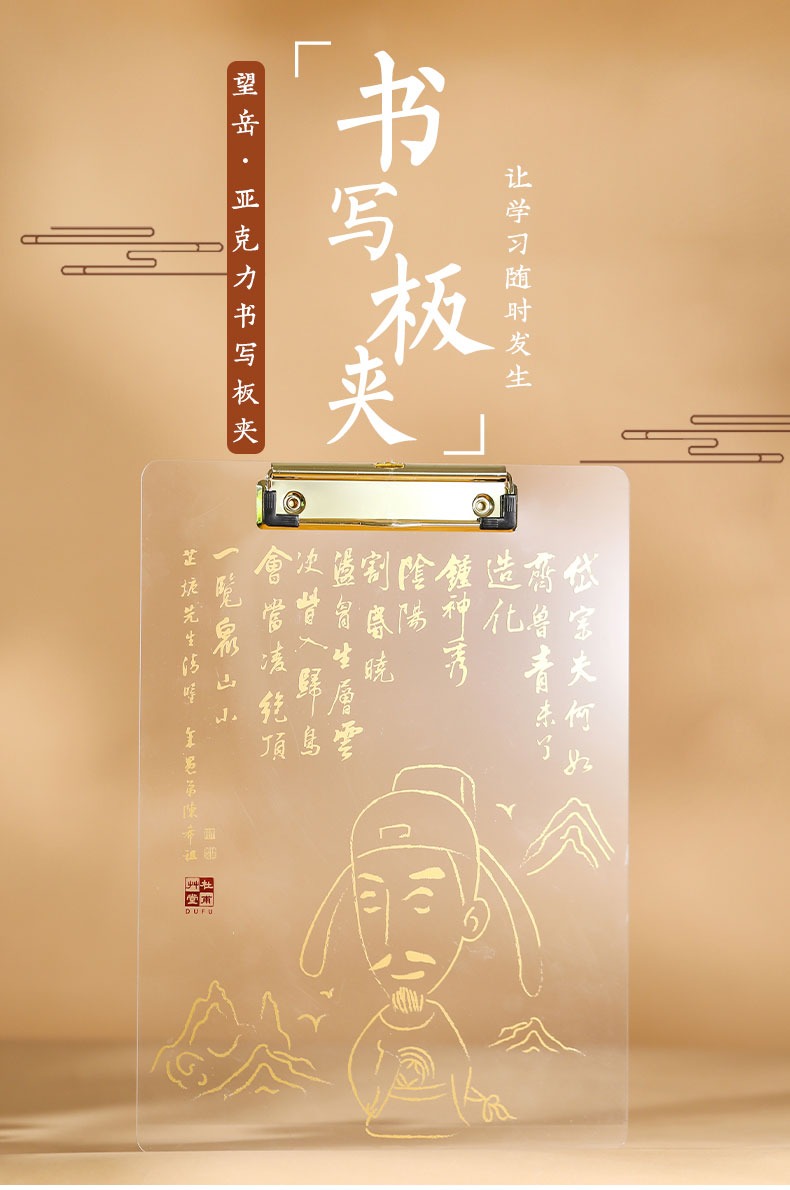 书写板夹
望岳·亚克力书写板夹
让学习随时发生
岱宗夫何如
齊魯青未了
造化
鍾神秀
陰陽
割昏曉
盪胷生層雲
决眥入歸鳥
會當凌絕頂
一覽衆山小
芷塘先生清鑒 年愚弟陳希祖
杜甫艸堂
DUFU